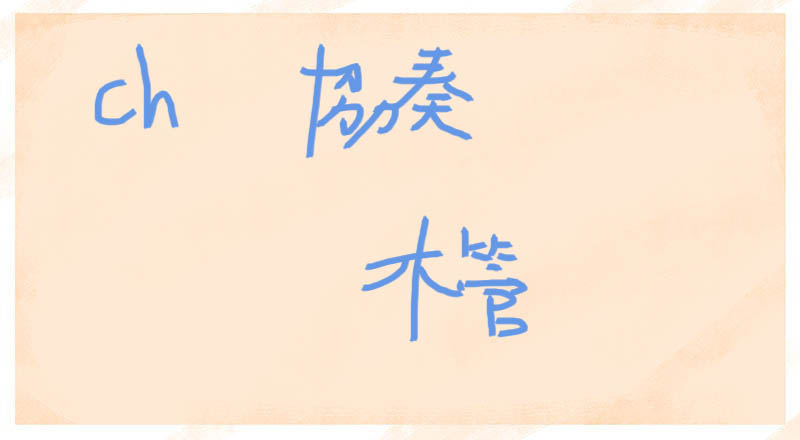 ch 協奏
木管